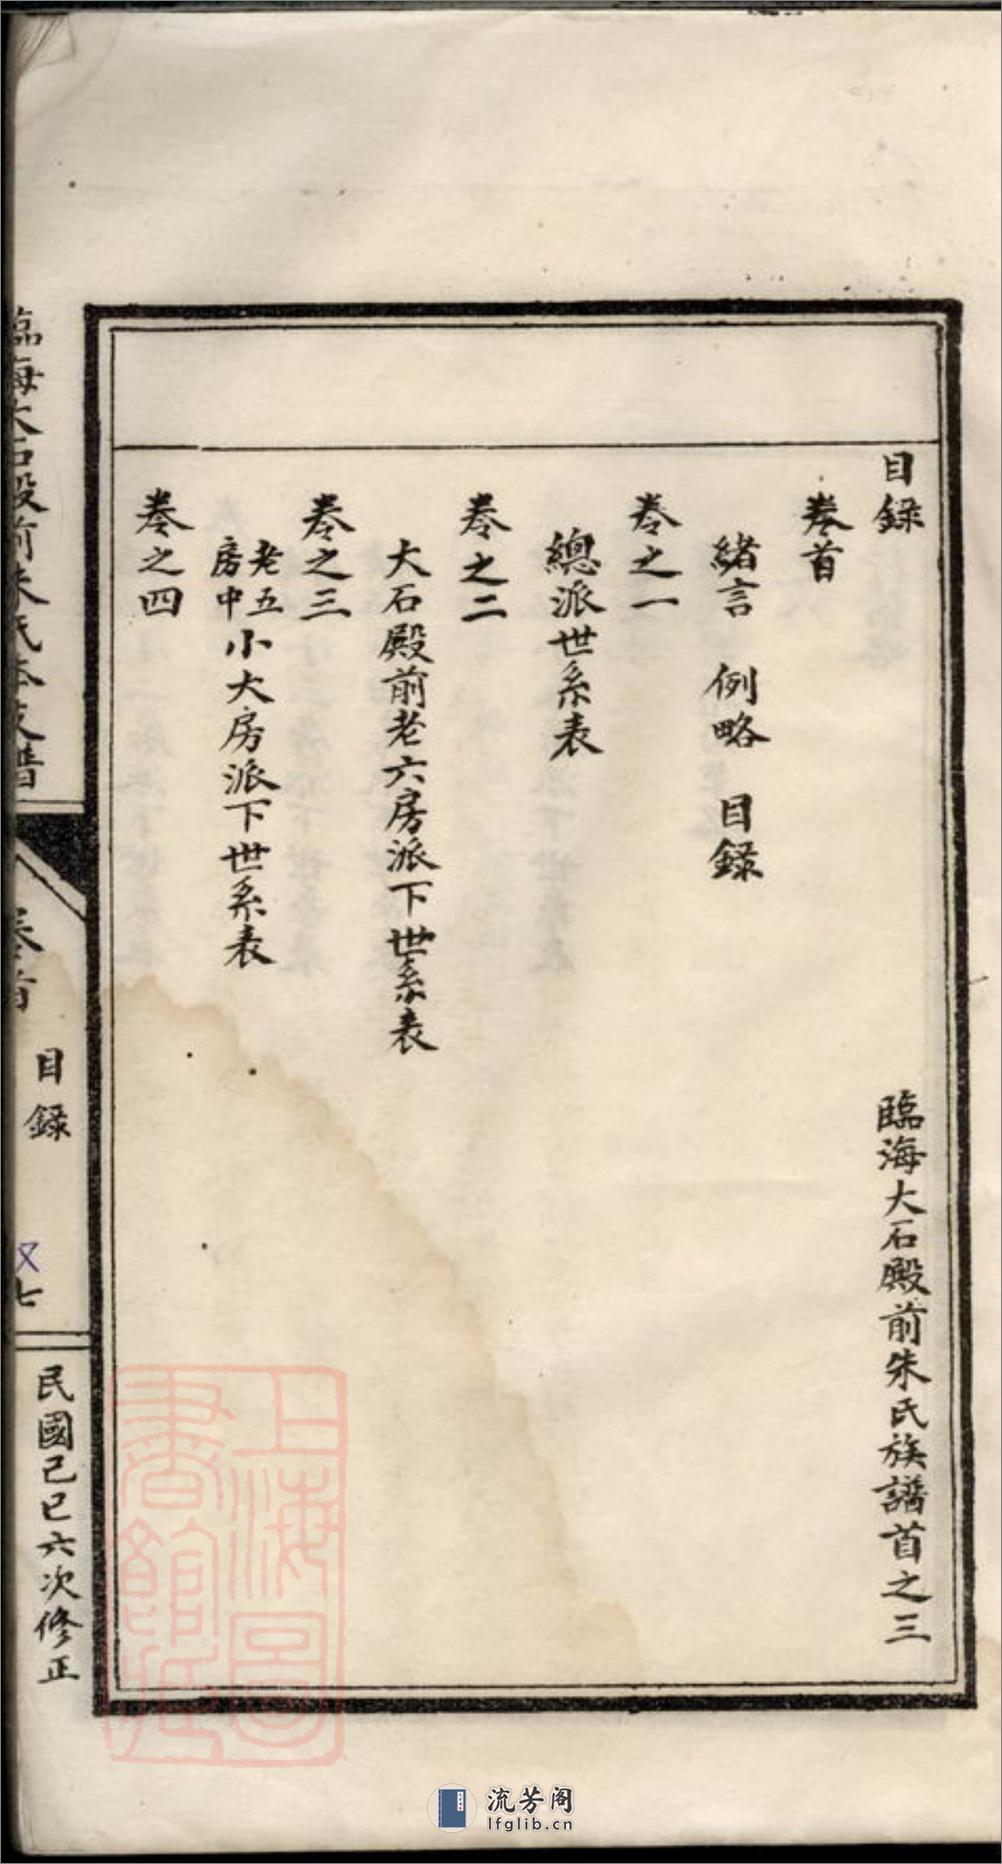 目録
臨海大石殿前朱氏族譜首之三
卷首
緒言 例略 目録
卷之一
總派世系表
卷之二
大石殿前老六房派下世系表
卷之三
老五房中小大房派下世系表
卷之四
臨海大石殿前朱氏本支譜
卷首
目録
又七
民國己巳六次修正
上海圖書館藏
流芳阁
lfglib.cn